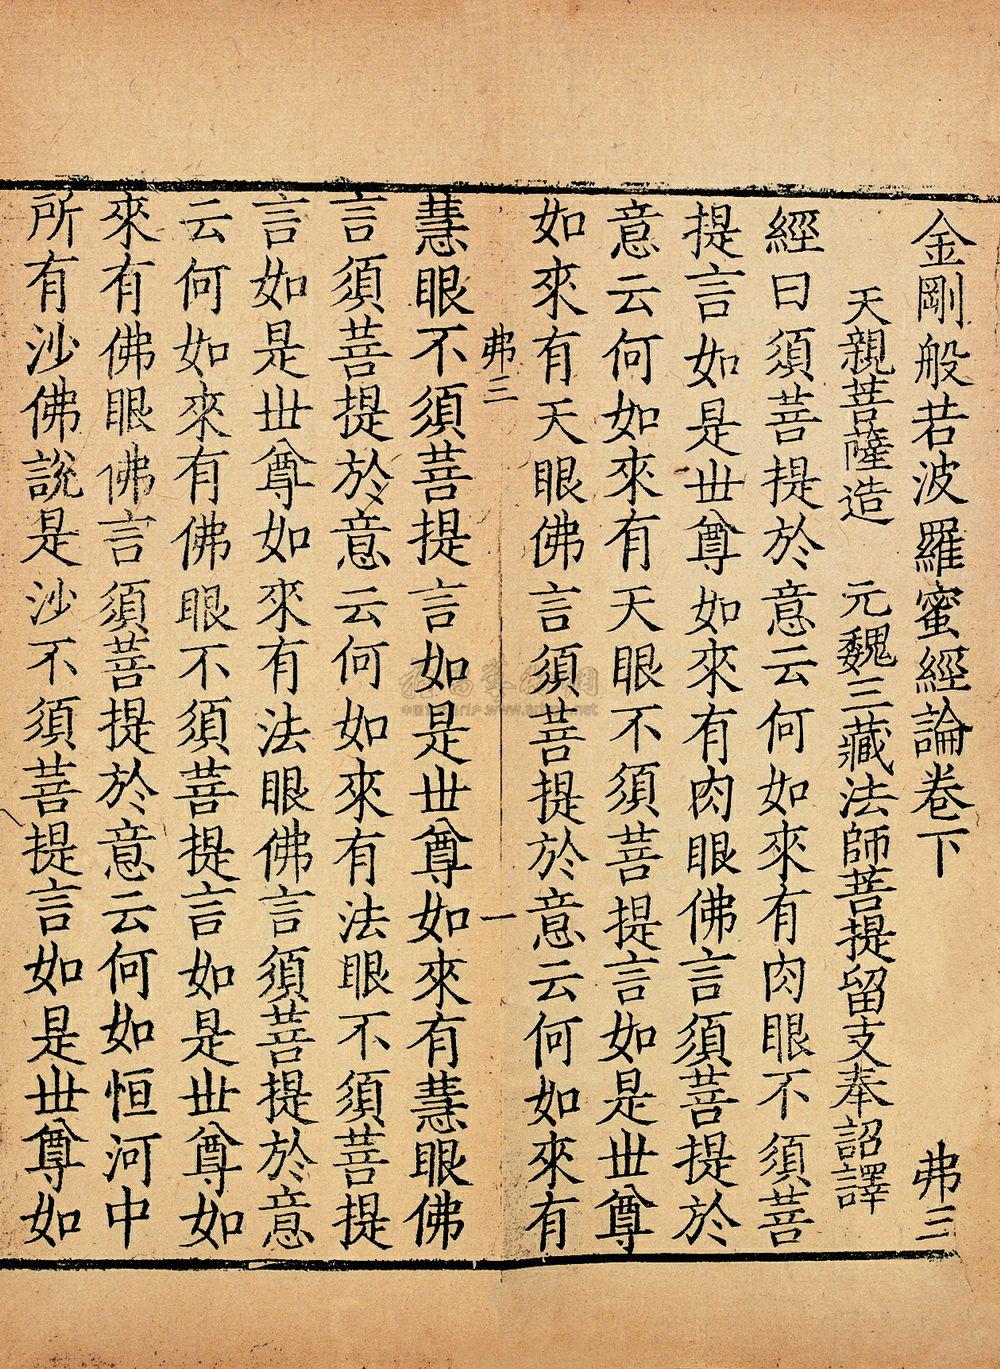 金剛般若波羅蜜經論卷下 弗三
天親菩薩造 元魏三藏法師菩提留支奉詔譯
經曰須菩提於意云何如來有肉眼不須菩
提言如是世尊如來有肉眼佛言須菩提於
意云何如來有天眼不須菩提言如是世尊
如來有天眼佛言須菩提於意云何如來有
弗三 一
慧眼不須菩提言如是世尊如來有慧眼佛
言須菩提於意云何如來有法眼不須菩提
言如是世尊如來有法眼佛言須菩提於意
云何如來有佛眼不須菩提言如是世尊如
來有佛眼佛言須菩提於意云何如恒河中
所有沙佛說是沙不須菩提言如是世尊如